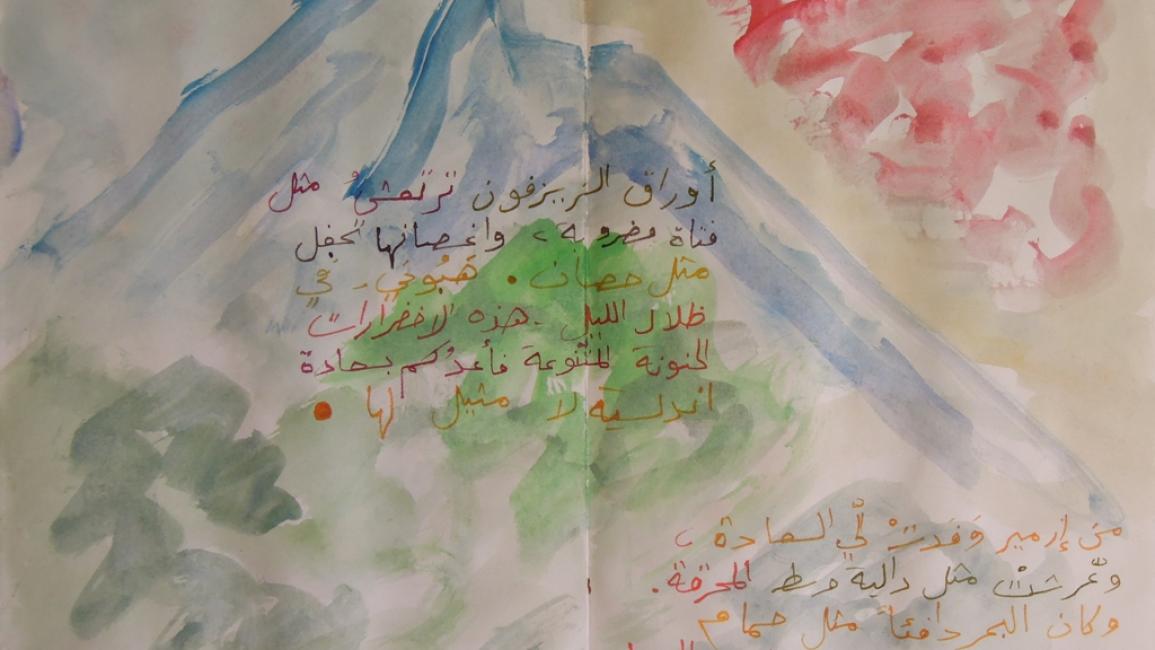 أوراق الزيزفون ترتعشُ مثل
فتاة مضروبة، واغصانها تجفل
مثل حصان. هَبُوني - في
ظلال الليل - هذه الاخضرارات
الحنونة المتنوعة فأعدُكم بسعادة
اندلسية لا مثيل لها.
من إزمير وَفَدَتْ لِّي السعادة،
وعرشتْ مثل دالية وسط المحرقة.
وكان البحر دافئاً مثل حمام